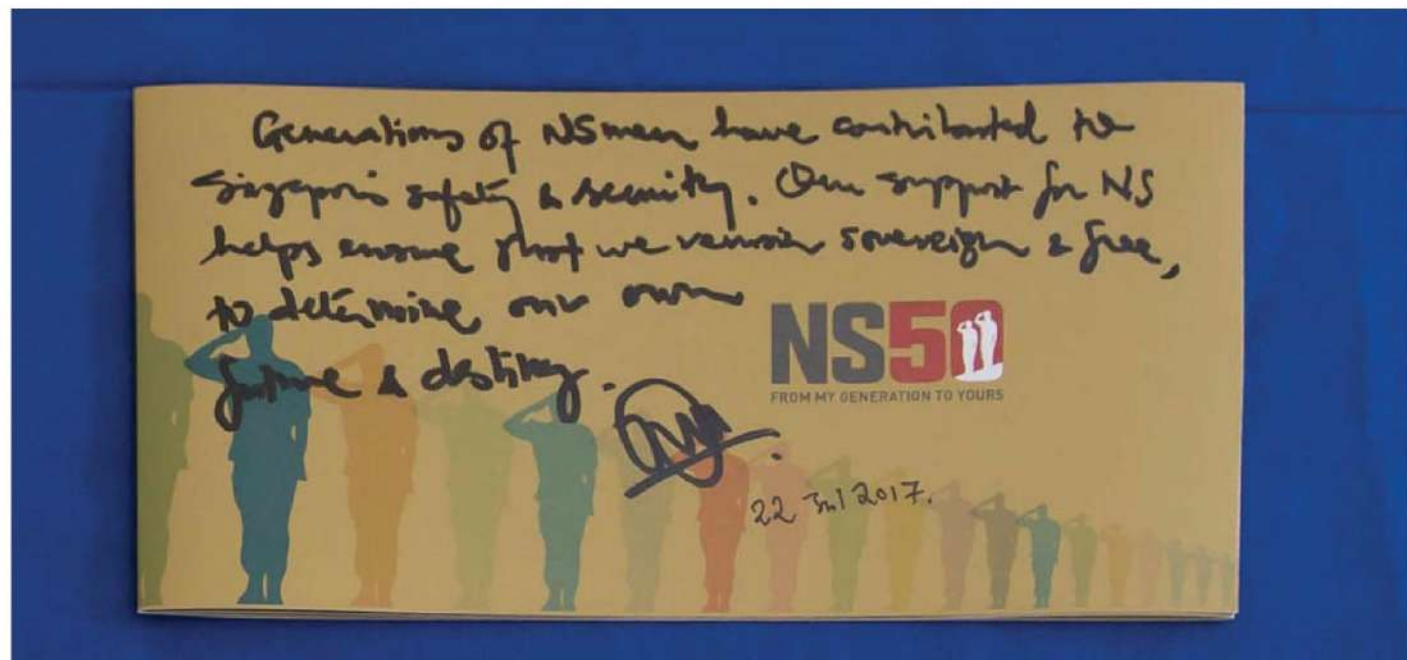 Generations of NSmen have contributed to
Singapore's safety & security. Our support for NS
helps ensure that we remain sovereign & free,
to determine our own
future & destiny.
NS50
FROM MY GENERATION TO YOURS
22 Jul 2017.